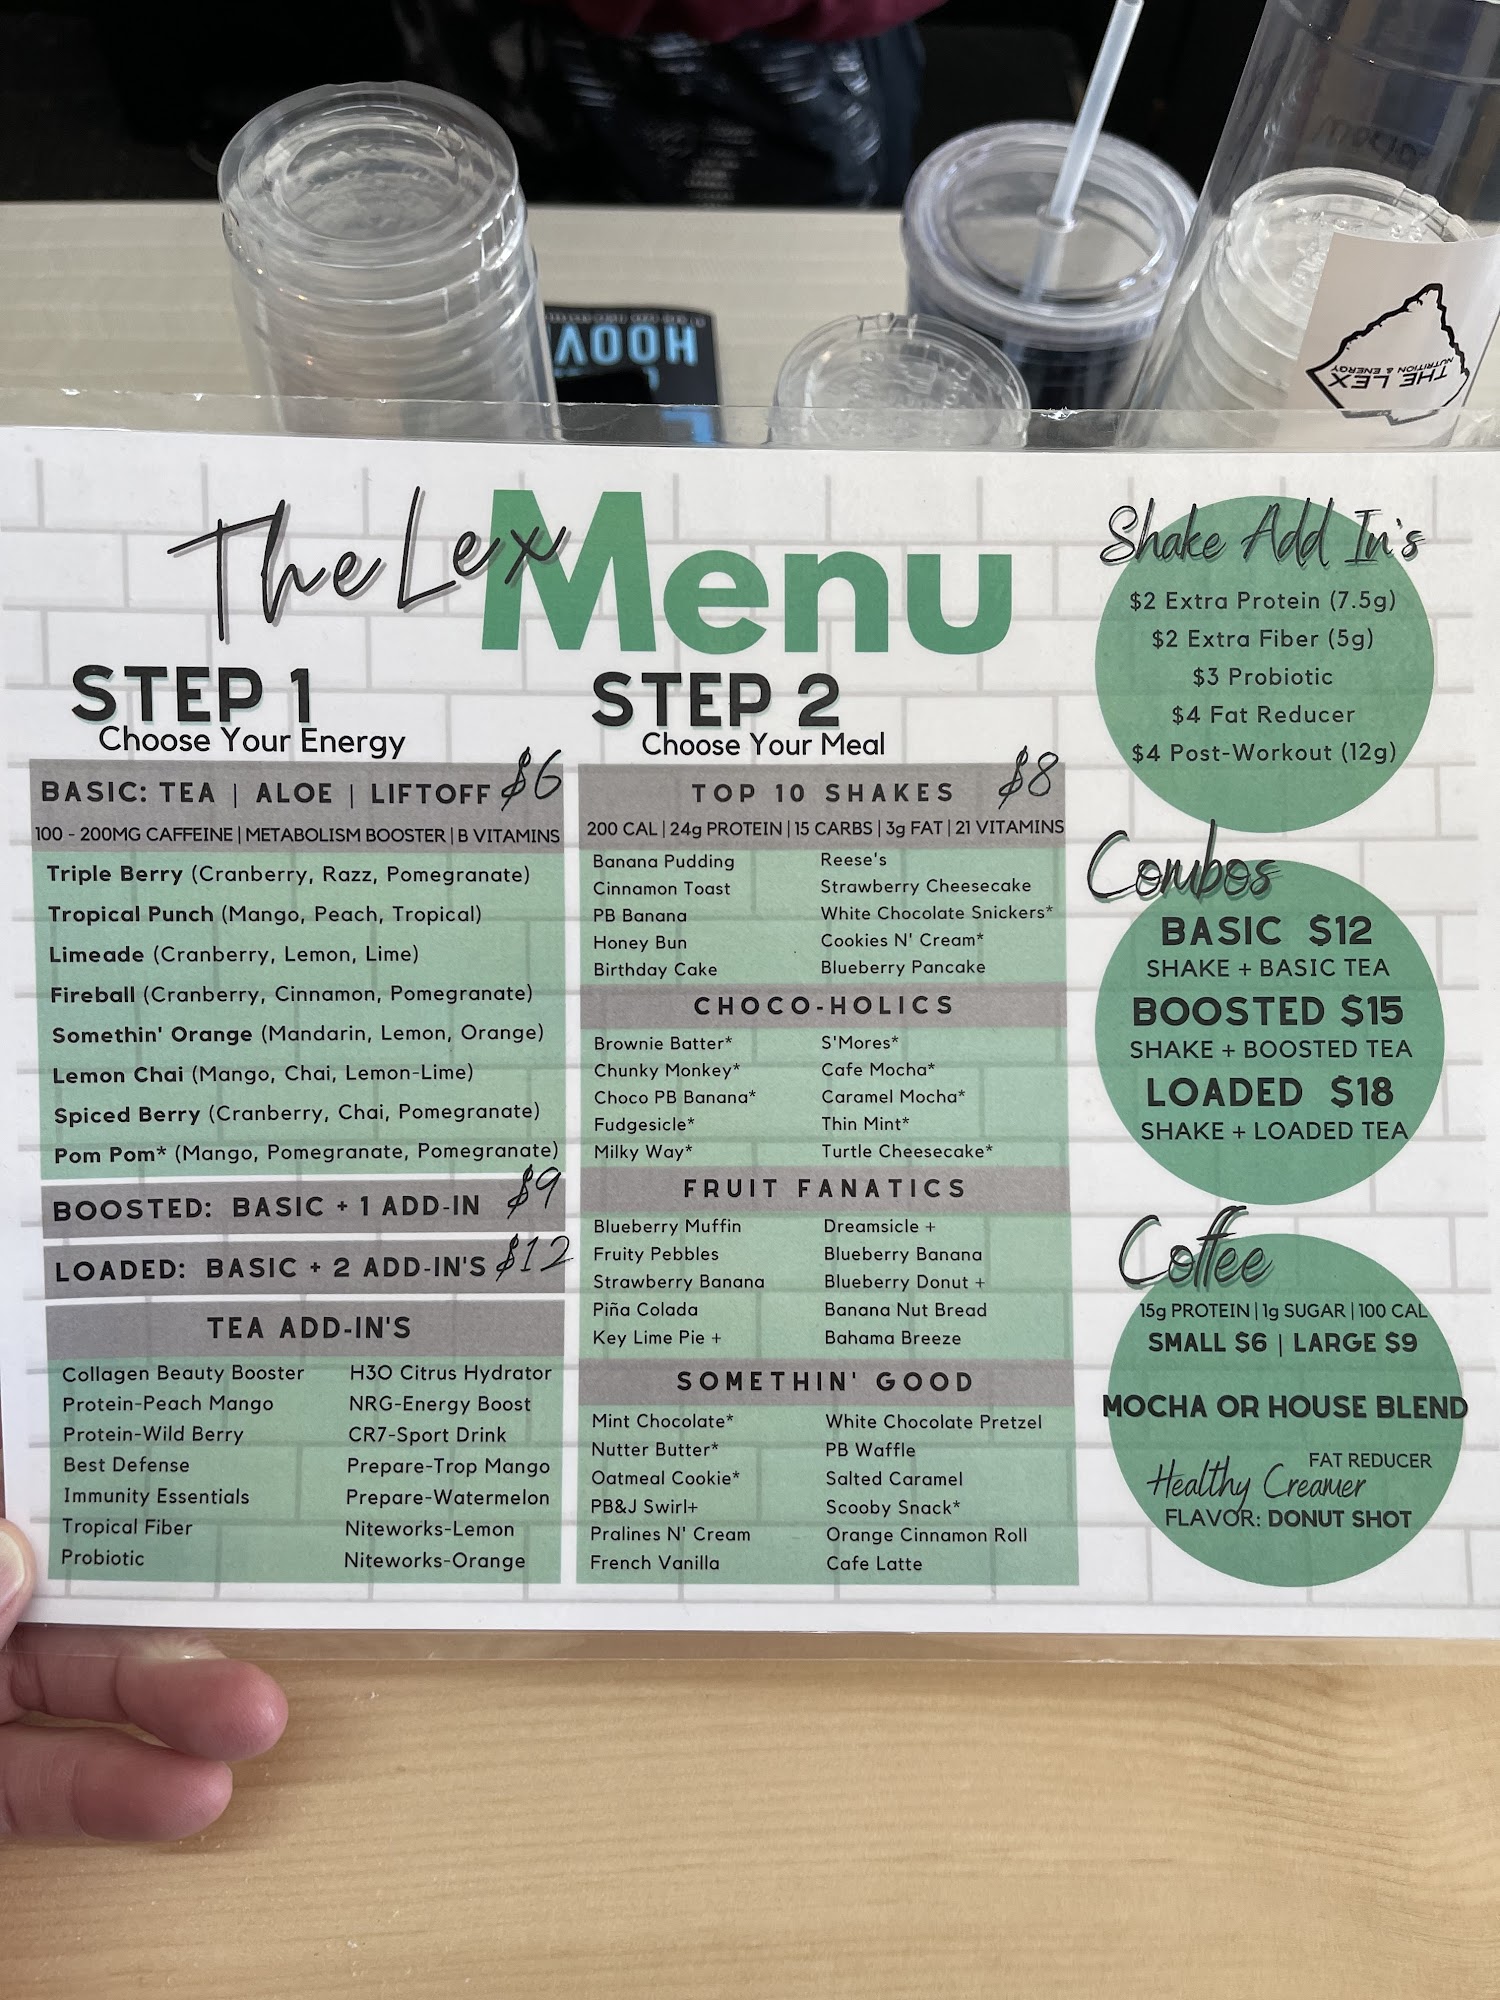 HOOV
THE LEX
NUTRITION & ENERGY
The Lex Menu
STEP 1
Choose Your Energy
BASIC: TEA | ALOE | LIFTOFF $6
100 - 200MG CAFFEINE | METABOLISM BOOSTER | B VITAMINS
Triple Berry (Cranberry, Razz, Pomegranate)
Tropical Punch (Mango, Peach, Tropical)
Limeade (Cranberry, Lemon, Lime)
Fireball (Cranberry, Cinnamon, Pomegranate)
Somethin' Orange (Mandarin, Lemon, Orange)
Lemon Chai (Mango, Chai, Lemon-Lime)
Spiced Berry (Cranberry, Chai, Pomegranate)
Pom Pom* (Mango, Pomegranate, Pomegranate)
BOOSTED: BASIC + 1 ADD-IN $9
LOADED: BASIC + 2 ADD-IN'S $12
TEA ADD-IN'S
Collagen Beauty Booster
Protein-Peach Mango
Protein-Wild Berry
Best Defense
Immunity Essentials
Tropical Fiber
Probiotic
H3O Citrus Hydrator
NRG-Energy Boost
CR7-Sport Drink
Prepare-Trop Mango
Prepare-Watermelon
Niteworks-Lemon
Niteworks-Orange
STEP 2
Choose Your Meal
TOP 10 SHAKES $8
200 CAL | 24g PROTEIN | 15 CARBS | 3g FAT | 21 VITAMINS
Banana Pudding
Cinnamon Toast
PB Banana
Honey Bun
Birthday Cake
Reese's
Strawberry Cheesecake
White Chocolate Snickers*
Cookies N' Cream*
Blueberry Pancake
CHOCO-HOLICS
Brownie Batter*
Chunky Monkey*
Choco PB Banana*
Fudgesicle*
Milky Way*
S'Mores*
Cafe Mocha*
Caramel Mocha*
Thin Mint*
Turtle Cheesecake*
FRUIT FANATICS
Blueberry Muffin
Fruity Pebbles
Strawberry Banana
Piña Colada
Key Lime Pie +
Dreamsicle +
Blueberry Banana
Blueberry Donut +
Banana Nut Bread
Bahama Breeze
SOMETHIN' GOOD
Mint Chocolate*
Nutter Butter*
Oatmeal Cookie*
PB&J Swirl+
Pralines N' Cream
French Vanilla
White Chocolate Pretzel
PB Waffle
Salted Caramel
Scooby Snack*
Orange Cinnamon Roll
Cafe Latte
Shake Add In's
$2 Extra Protein (7.5g)
$2 Extra Fiber (5g)
$3 Probiotic
$4 Fat Reducer
$4 Post-Workout (12g)
Combos
BASIC $12
SHAKE + BASIC TEA
BOOSTED $15
SHAKE + BOOSTED TEA
LOADED $18
SHAKE + LOADED TEA
Coffee
15g PROTEIN | 1g SUGAR | 100 CAL
SMALL $6 | LARGE $9
MOCHA OR HOUSE BLEND
FAT REDUCER
Healthy Creamer
FLAVOR: DONUT SHOT